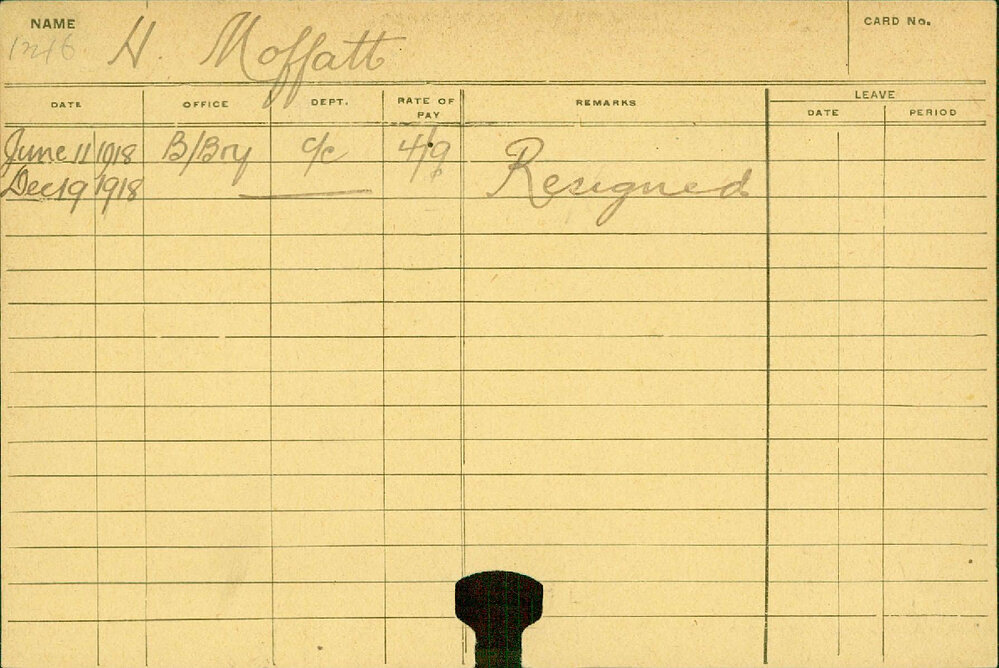 NAME
H. Moffatt
CARD No.
DATE OFFICE DEPT. RATE OF PAY REMARKS LEAVE
DATE PERIOD
June 11 1918 B/Bry c/c 4/9
Dec 19 1918 Resigned